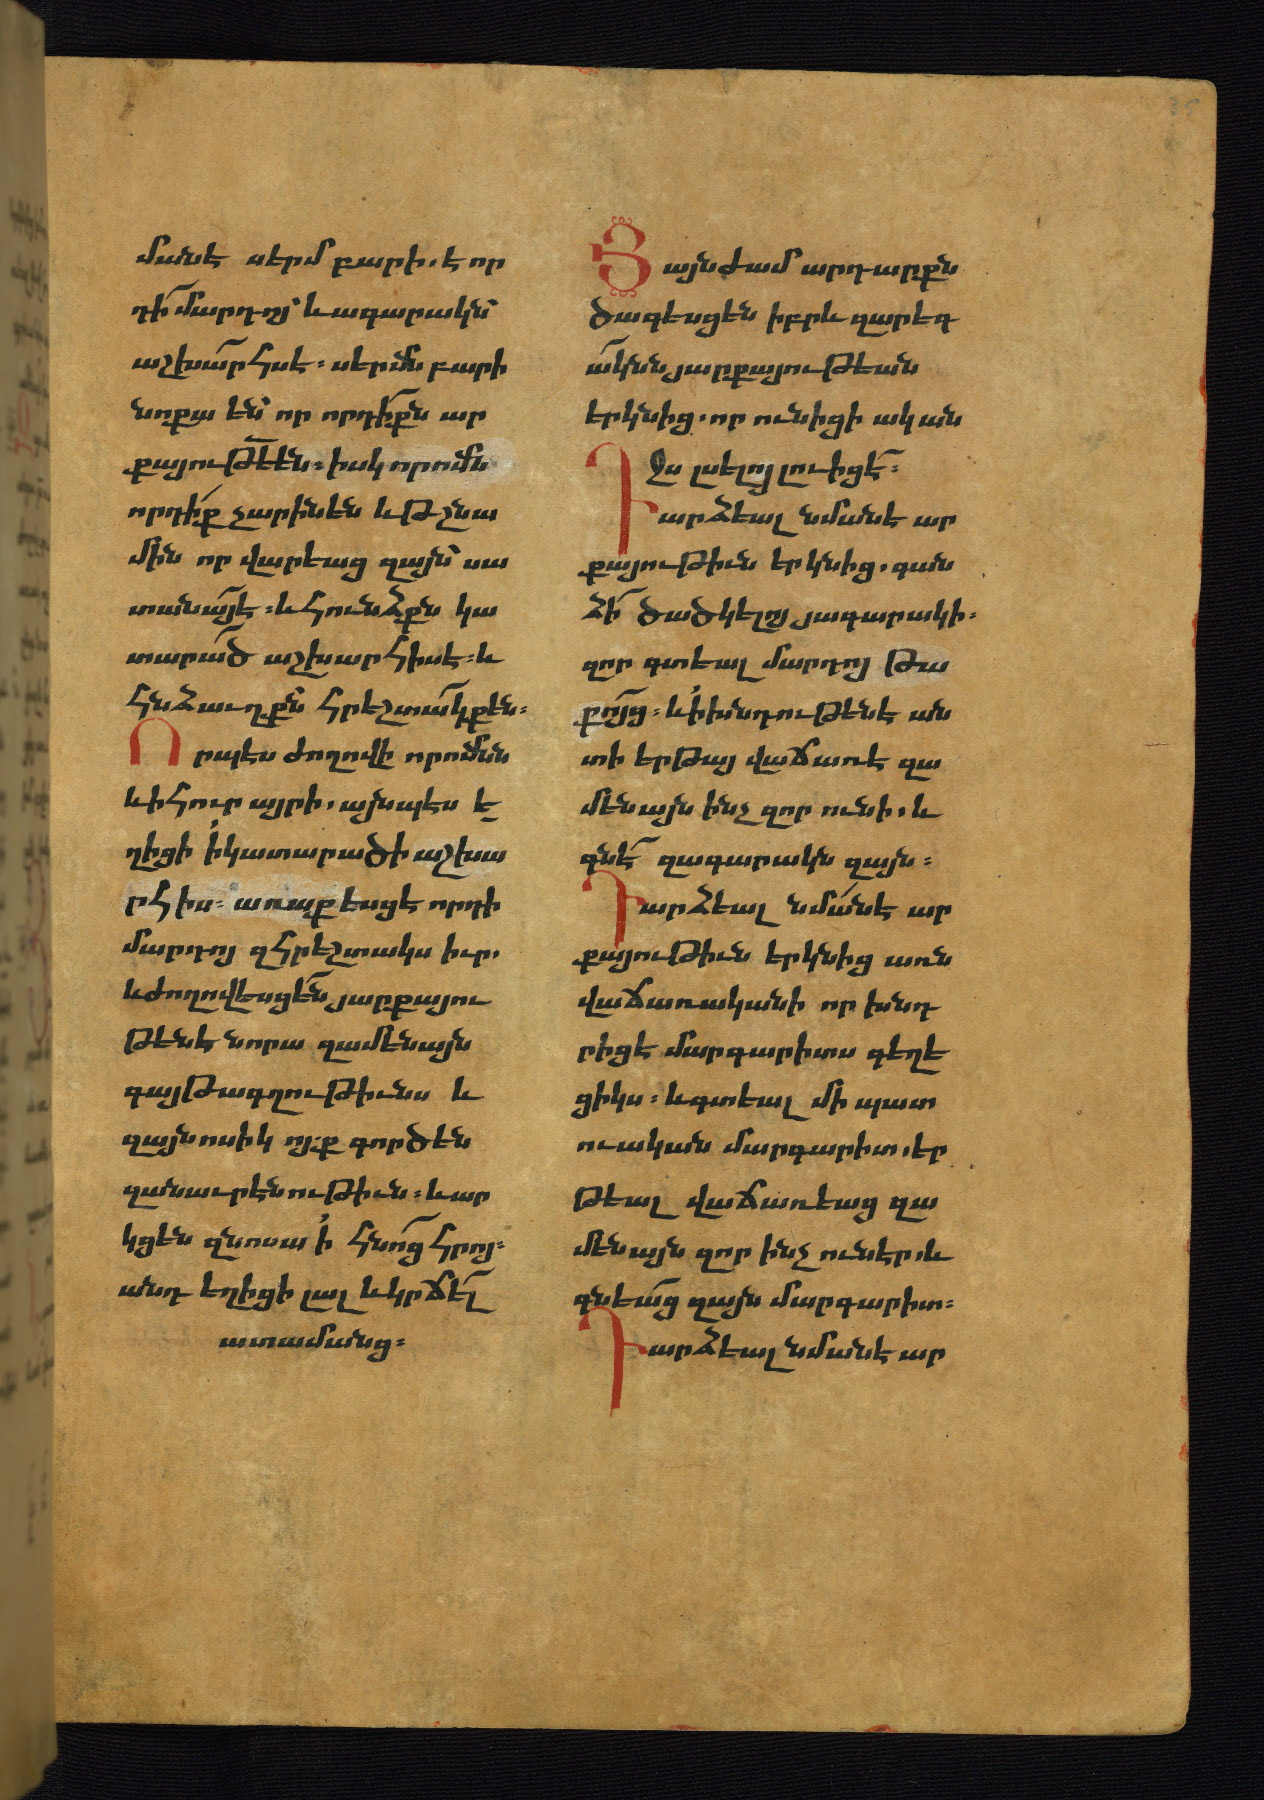 մանէ սերմ բարի. է որ
դի՛ մարդոյ՝ և ագարակն՝
աշխա՛րհս է։ սերմն բարի
նոքա են՝ որ որդի՛քն ար
քայութեեն։ իսկ որոմն
որդի՛ք չարին են և թշնա
մին որ վարեաց զայն՝ սա
տանա՛յ է։ և հունձքն կա
տարած աշխարհիս է։ և
հնձաւղքն՝ հրեշտա՛կք են։
Որպէս ժողովի որոմնն
և ի հուր այրի. այնպէս ե
ղիցի ի կատարածի աշխա
րհիս։ առաքեսցէ որդի
մարդոյ զհրեշտակս իւր.
և ժողովեսցե՛ն յարքայու
թենէ նորա զամենայն
գայթագղութիւնս և
զայնոսիկ ոյք գործեն
զանաւրէնութիւն։ և ար
կցեն զնոսա ի հնո՛ց հրոյ։
անդ եղիցի լալ և կրճե՛լ
ատամանց։
Յայնժամ արդարքն
ծագեսցեն իբրև զարեգ
ա՛կնն յարքայութեան
երկնից. որ ունիցի ական
ջս լսելոյ լուիցէ՛։
Դարձեալ նմանէ ար
քայութիւն երկնից. գան
ձի՛ ծածկելոյ յագարակի։
զոր գտեալ մարդոյ թա
քո՛յց։ և ի խնդութենէ ան
տի երթայ վաճառէ զա
մենայն ինչ զոր ունի. և
գնէ՛ զագարակն զայն։
Դարձեալ նմա՛նէ ար
քայութիւն երկնից առն
վաճառականի որ խնդ
րիցէ մարգարիտս գեղե
ցիկս։ և գտեալ մի պատ
ուական մարգարիտ. եր
թեալ վաճառեաց զա
մենայն զոր ինչ ուներ. և
գնեա՛ց զայն մարգարիտ։
Դարձեալ նմանէ ար